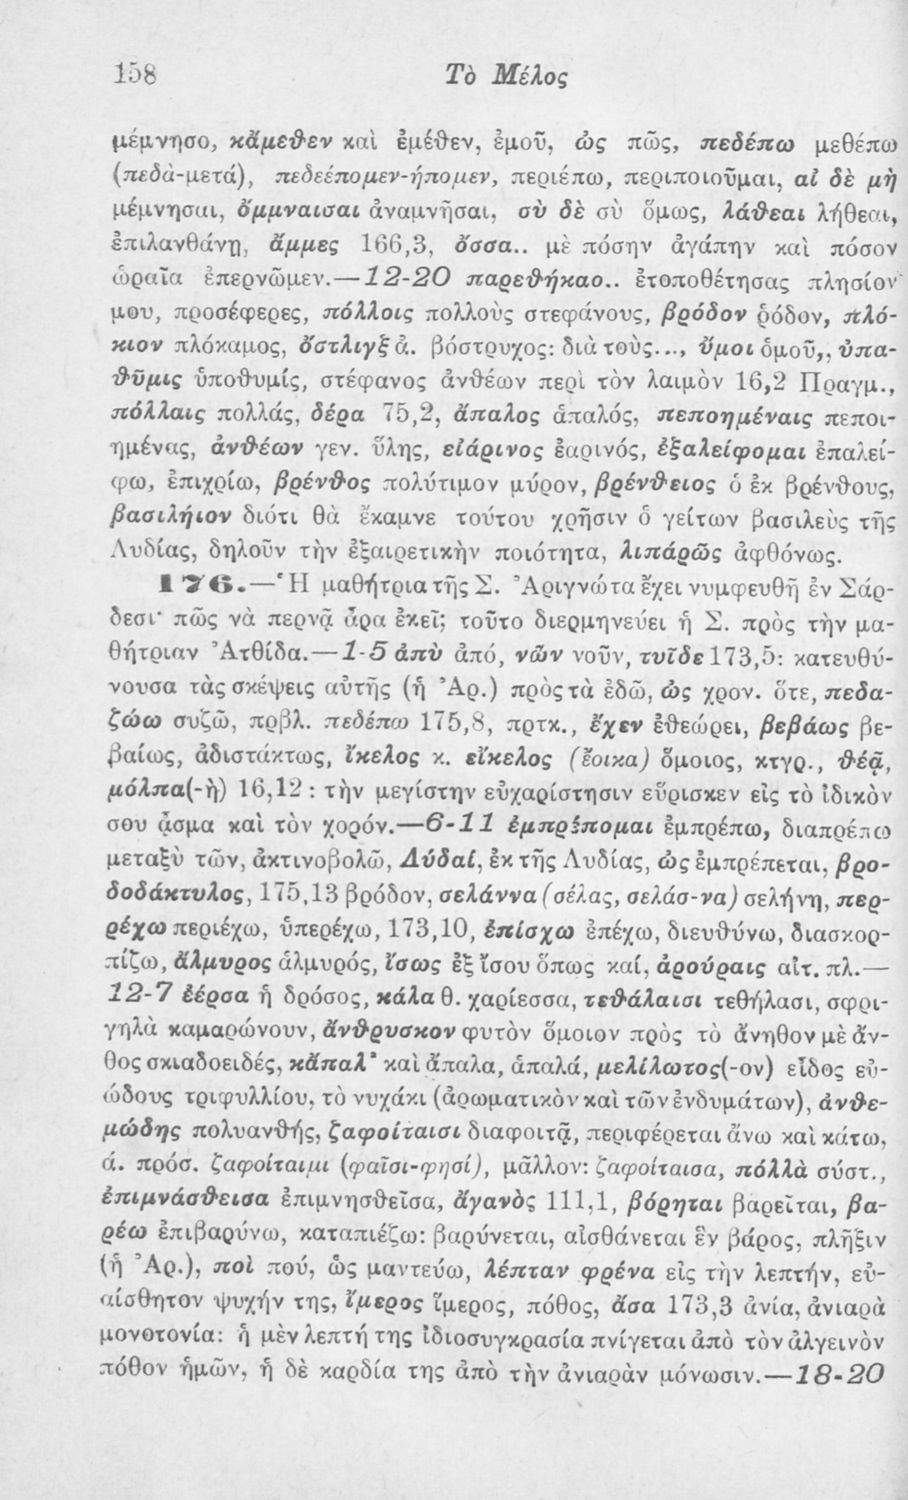 158 Τὸ Μέλος
μέμνησο, κἄμεθεν καὶ ἐμέθεν, ἐμοῦ, ὠς πῶς, πεδέπω μεθέπω
(πεδὰ-μετά), πεδεέπομεν-ήπομεν, περιέπω, περιποιοῦμαι, αἰ δὲ μὴ
μέμνησαι, ὄμμναισαι ἀναμνῆσαι, σὺ δὲ σὺ ὅμως, λάθεαι λήθεαι,
ἐπιλανθάνῃ, ἄμμες 166,3, ὄσσα.. μὲ πόσην ἀγάπην καὶ πόσον
ὡραῖα ἐπερνῶμεν.—12-20 παρεθήκαο.. ἐτοποθέτησας πλησίον
μου, προσέφερες, πόλλοις πολλοὺς στεφάνους, βρόδον ῥόδον, πλό-
κιον πλόκαμος, ὄστλιγξ ἀ. βόστρυχος: διὰ τοὺς..., ὔμοι ὁμοῦ,, ὐπα-
θῦμις ὑποθυμίς, στέφανος ἀνθέων περὶ τὸν λαιμὸν 16,2 Πραγμ.,
πόλλαις πολλάς, δέρα 75,2, ἄπαλος ἁπαλός, πεποημέναις πεποι-
ημένας, ἀνθέων γεν. ὕλης, εἰάρινος ἐαρινός, ἐξαλείφομαι ἐπαλεί-
φω, ἐπιχρίω, βρένθος πολύτιμον μύρον, βρένθειος ὁ ἐκ βρένθους,
βασιλήιον διότι θὰ ἔκαμνε τούτου χρῆσιν ὁ γείτων βασιλεὺς τῆς
Λυδίας, δηλοῦν τὴν ἐξαιρετικὴν ποιότητα, λιπάρῶς ἀφθόνως.
176.—Ἡ μαθήτρια τῆς Σ. Ἀριγνώτα ἔχει νυμφευθῆ ἐν Σάρ-
δεσι· πῶς νὰ περνᾷ ἆρα ἐκεῖ; τοῦτο διερμηνεύει ἡ Σ. πρὸς τὴν μα-
θήτριαν Ἀτθίδα.—1-5 ἀπὺ ἀπό, νῶν νοῦν, τυῖδε 173,5: κατευθύ-
νουσα τὰς σκέψεις αὐτῆς (ἡ Ἀρ.) πρὸς τὰ ἐδῶ, ὠς χρον. ὅτε, πεδα-
ζώω συζῶ, πρβλ. πεδέπω 175,8, πρτκ., ἔχεν ἐθεώρει, βεβάως βε-
βαίως, ἀδιστάκτως, ἴκελος κ. εἴκελος (ἔοικα) ὅμοιος, κτγρ., θέᾳ,
μόλπα(-ὴ) 16,12 : τὴν μεγίστην εὐχαρίστησιν εὕρισκεν εἰς τὸ ἰδικὸν
σου ᾆσμα καὶ τὸν χορόν.—6-11 ἐμπρέπομαι ἐμπρέπω, διαπρέπω
μεταξὺ τῶν, ἀκτινοβολῶ, Λύδαί, ἐκ τῆς Λυδίας, ὠς ἐμπρέπεται, βρο-
δοδάκτυλος, 175,13 βρόδον, σελάννα (σέλας, σελάσ-να) σελήνη, περ-
ρέχω περιέχω, ὑπερέχω, 173,10, ἐπίσχω ἐπέχω, διευθύνω, διασκορ-
πίζω, ἄλμυρος ἁλμυρός, ἴσως ἐξ ἴσου ὅπως καί, ἀρούραις αἰτ. πλ.—
12-7 ἐέρσα ἡ δρόσος, κάλα θ. χαρίεσσα, τεθάλαισι τεθήλασι, σφρι-
γηλὰ καμαρώνουν, ἄνθρυσκον φυτὸν ὅμοιον πρὸς τὸ ἄνηθον μὲ ἄν-
θος σκιαδοειδές, κἄπαλ' καὶ ἄπαλα, ἁπαλά, μελίλωτος(-ον) εἶδος εὐ-
ώδους τριφυλλίου, τὸ νυχάκι (ἀρωματικὸν καὶ τῶν ἐνδυμάτων), ἀνθε-
μώδης πολυανθής, ζαφοίταισι διαφοιτᾷ, περιφέρεται ἄνω καὶ κάτω,
ά. πρόσ. ζαφοίταιμι (φαῖσι-φησί), μᾶλλον: ζαφοίταισα, πόλλὰ σύστ.,
ἐπιμνάσθεισα ἐπιμνησθεῖσα, ἄγανὸς 111,1, βόρηται βαρεῖται, βα-
ρέω ἐπιβαρύνω, καταπιέζω: βαρύνεται, αἰσθάνεται ἓν βάρος, πλῆξιν
(ἡ Ἀρ.), ποὶ πού, ὡς μαντεύω, λέπταν φρένα εἰς τὴν λεπτήν, εὐ-
αίσθητον ψυχήν της, ἴμερος ἵμερος, πόθος, ἄσα 173,3 ἀνία, ἀνιαρὰ
μονοτονία: ἡ μὲν λεπτή της ἰδιοσυγκρασία πνίγεται ἀπὸ τὸν ἀλγεινὸν
πόθον ἡμῶν, ἡ δὲ καρδία της ἀπὸ τὴν ἀνιαρὰν μόνωσιν.—18-20